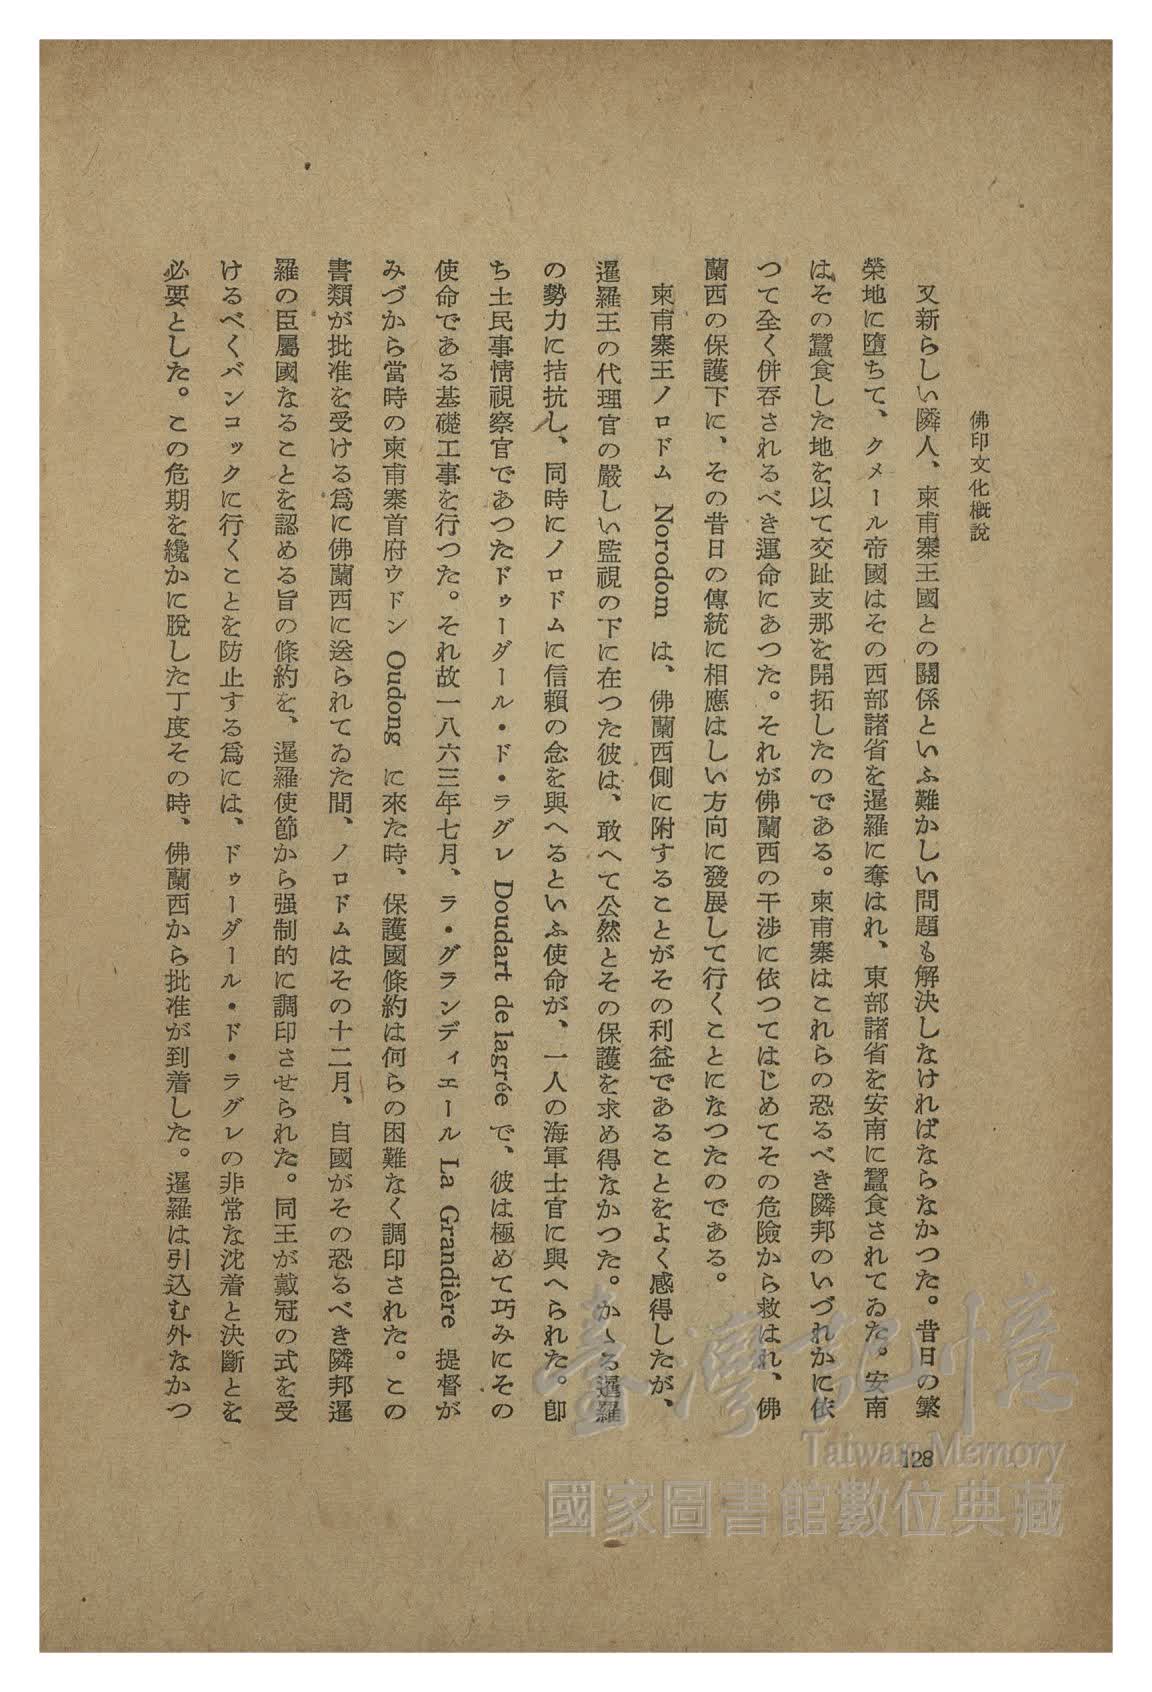 佛印文化概説
又新らしい隣人、柬甫寨王國との關係といふ難かしい問題も解決しなければならなかつた。昔日の繁
榮地に墮ちて、クメール帝國はその西部諸省を暹羅に奪はれ、東部諸省を安南に蠶食されてゐた。安南
はその蠶食した地を以て交趾支那を開拓したのである。柬甫寨はこれらの恐るべき隣邦のいづれかに依
つて全く併呑されるべき運命にあつた。それが佛蘭西の干渉に依つてはじめてその危險から救はれ、佛
蘭西の保護下に、その昔日の傳統に相應はしい方向に發展して行くことになつたのである。
柬甫寨王ノロドム Norodom は、佛蘭西側に附することがその利益であることをよく感得したが、
暹羅王の代理官の嚴しい監視の下に在つた彼は、敢へて公然とその保護を求め得なかつた。かゝる暹羅
の勢力に拮抗し、同時にノロドムに信賴の念を與へるといふ使命が、一人の海軍士官に與へられた。卽
ち土民事情視察官であつたドゥーダール・ド・ラグレ Doudart de lagrée で、彼は極めて巧みにその
使命である基礎工事を行つた。それ故一八六三年七月、ラ・グランディエール La Grandière 提督が
みづから當時の柬甫寨首府ウドン Oudong に來た時、保護國條約は何らの困難なく調印された。この
書類が批准を受ける爲に佛蘭西に送られてゐた間、ノロドムはその十二月、自國がその恐るべき隣邦暹
羅の臣屬國なることを認める旨の條約を、暹羅使節から强制的に調印させられた。同王が戴冠の式を受
けるべくバンコックに行くことを防止する爲には、ドゥーダール・ド・ラグレの非常な沈着と決斷とを
必要とした。この危期を纔かに脫した丁度その時、佛蘭西から批准が到着した。暹羅は引込む外なかつ
128
臺灣記憶
Taiwan Memory
國家圖書館數位典藏